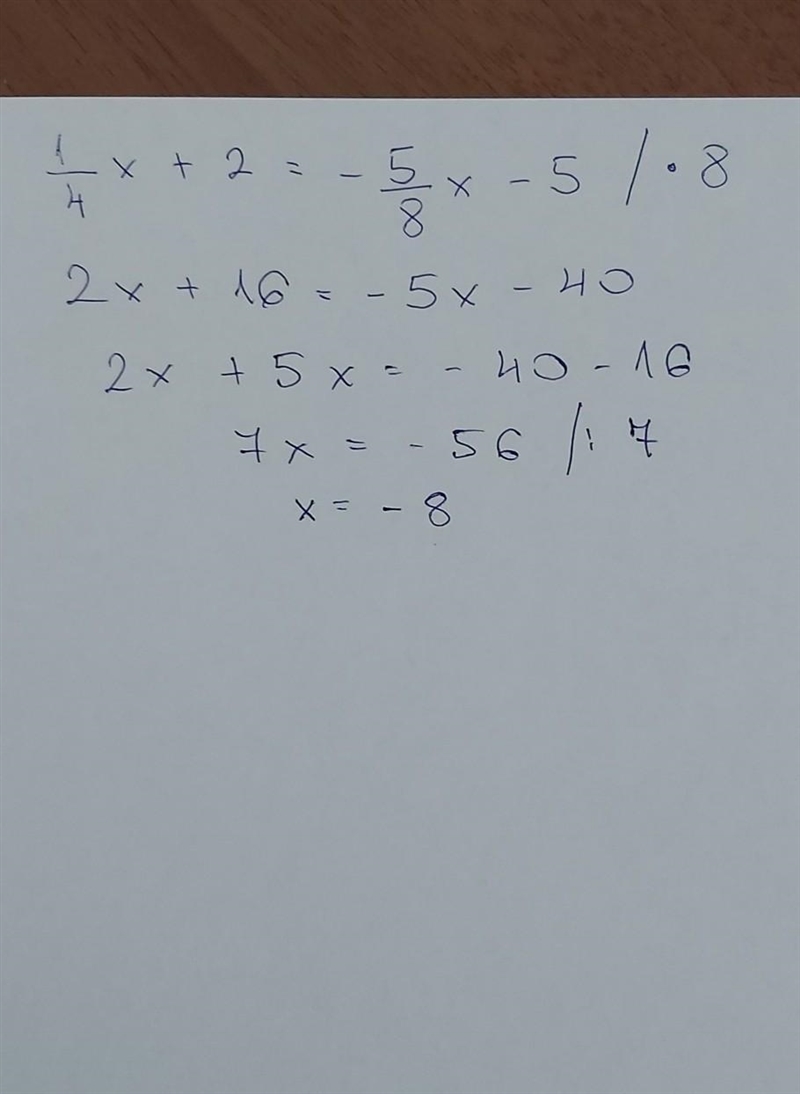 1/4 x + 2 = - 5/8 x - 5 / · 8
2x + 16 = - 5x - 40
2x + 5x = - 40 - 16
7x = - 56 /: 7
x = - 8